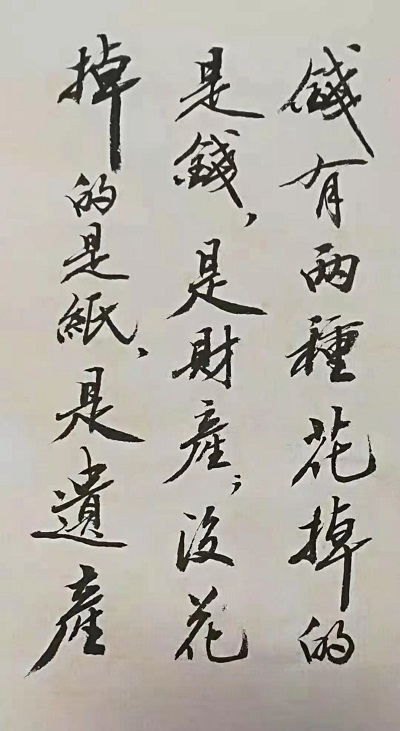 錢有两種花掉的
是錢，是財產；沒花
掉的是紙、是遺產